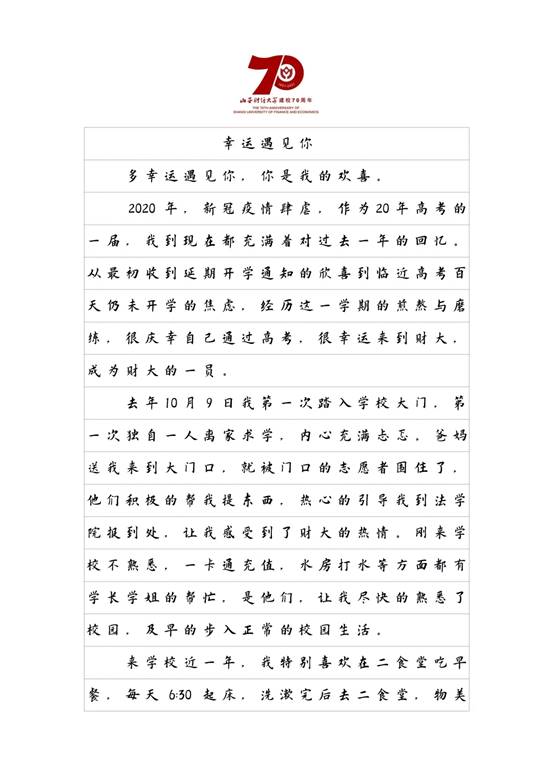 70
1951-2021
山西财经大学建校70周年
THE 70TH ANNIVERSARY OF
SHANXI UNIVERSITY OF FINANCE AND ECONOMICS
幸运遇见你
多幸运遇见你，你是我的欢喜。
2020年，新冠疫情肆虐，作为20年高考的
一届，我到现在都充满着对过去一年的回忆。
从最初收到延期开学通知的欣喜到临近高考百
天仍未开学的焦虑，经历这一学期的煎熬与磨
练，很庆幸自己通过高考，很幸运来到财大，
成为财大的一员。
去年10月9日我第一次踏入学校大门，第
一次独自一人离家求学，内心充满忐忑，爸妈
送我来到大门口，就被门口的志愿者围住了，
他们积极的帮我提东西，热心的引导我到法学
院报到处，让我感受到了财大的热情。刚来学
校不熟悉，一卡通充值，水房打水等方面都有
学长学姐的帮忙，是他们，让我尽快的熟悉了
校园，及早的步入正常的校园生活。
来学校近一年，我特别喜欢在二食堂吃早
餐，每天6:30起床，洗漱完后去二食堂，物美